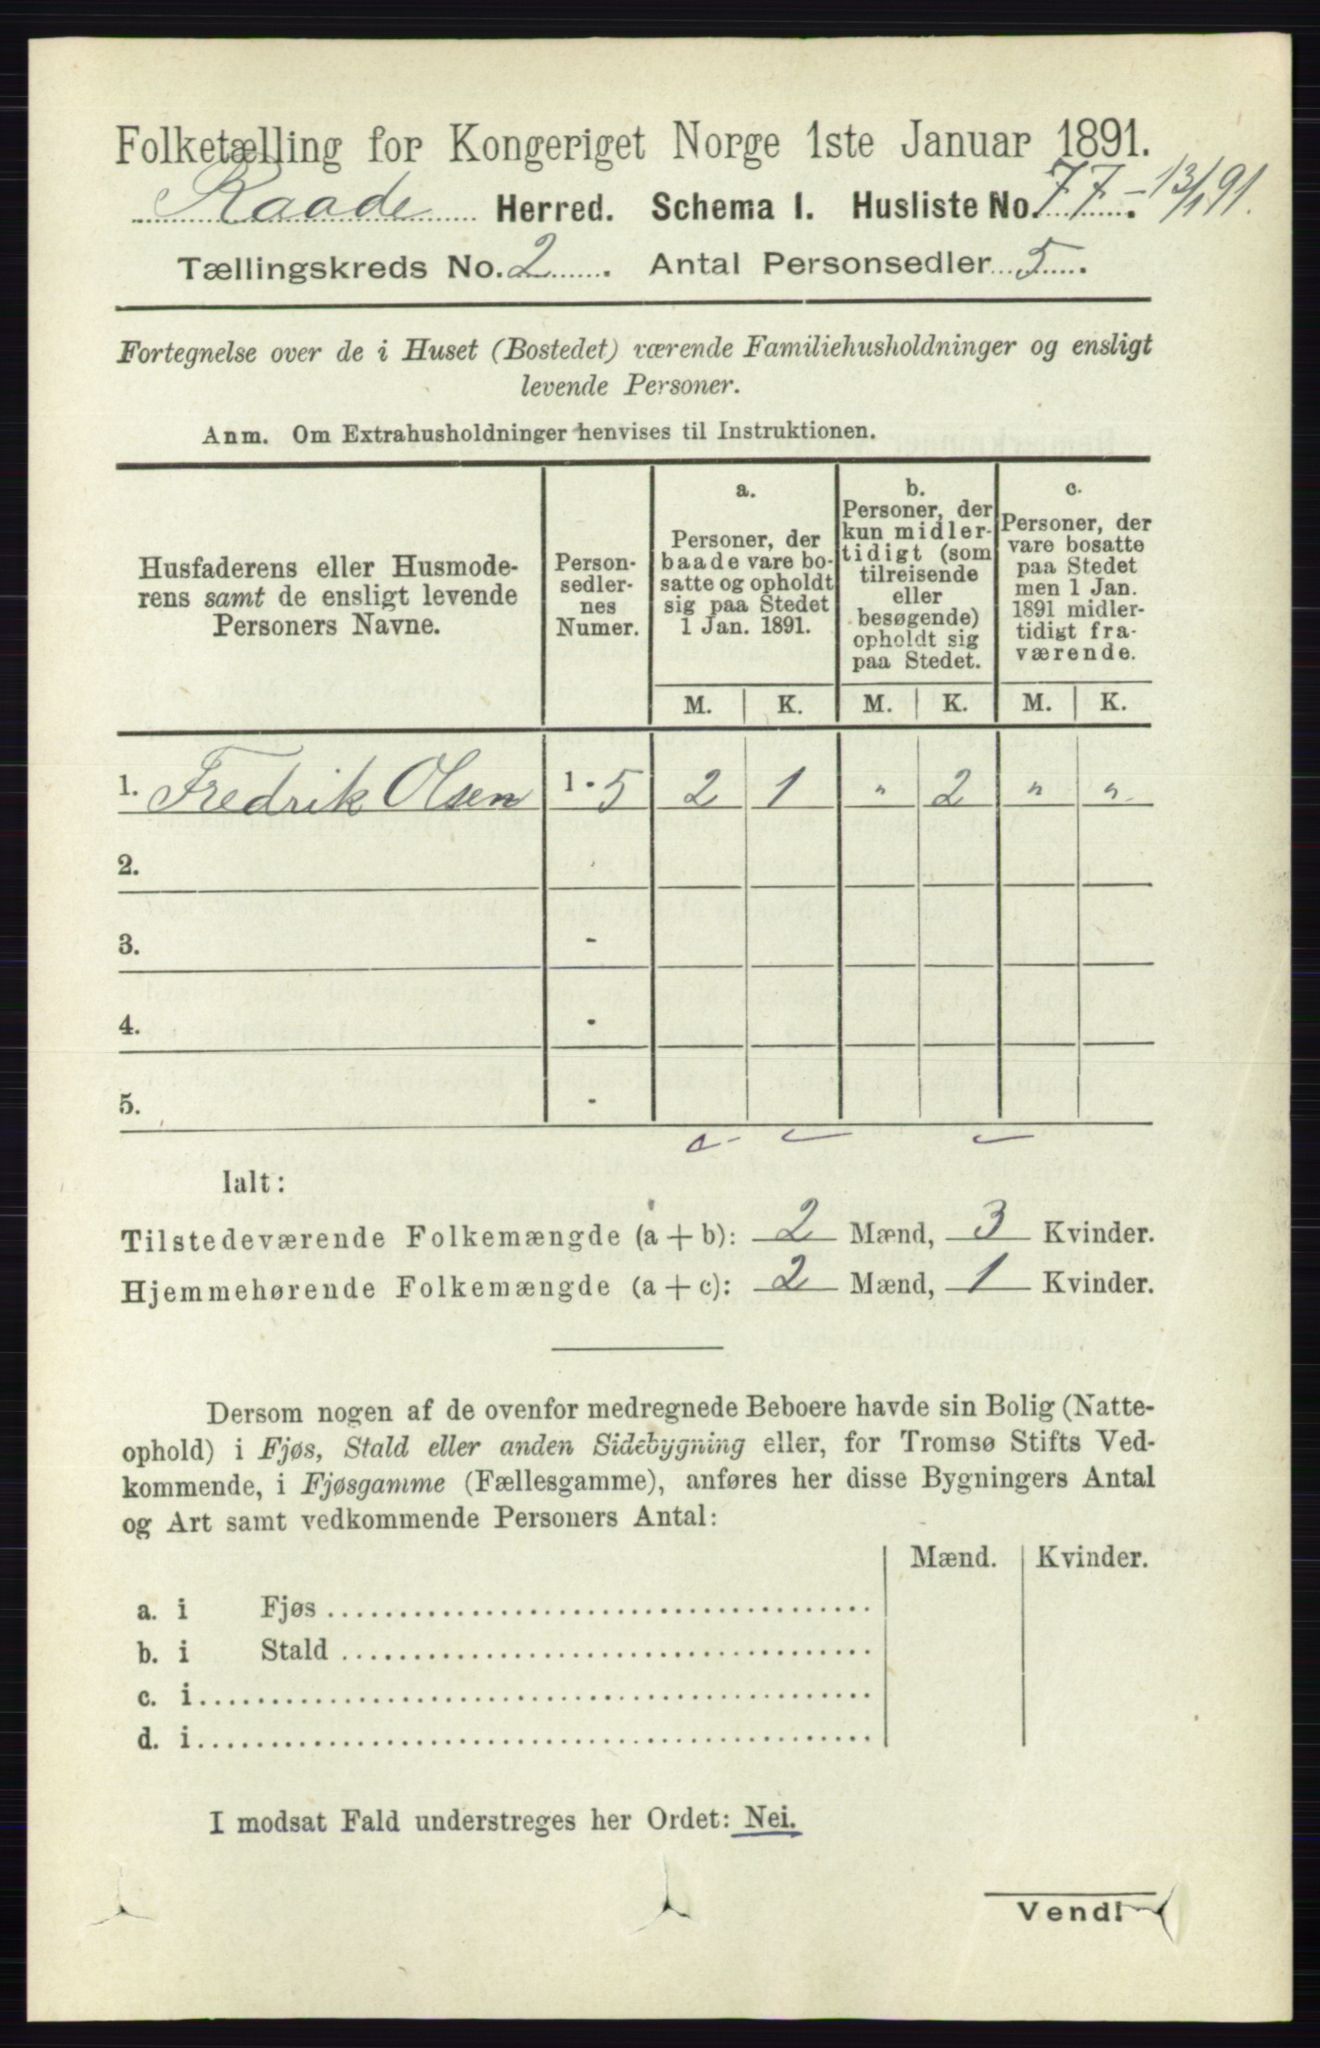 Folketælling for Kongeriget Norge 1ste Januar 1891.
Raade Herred. Schema I. Husliste No. 77. - 13/1 91.
Tællingskreds No. 2. Antal Personsedler 5.
Fortegnelse over de i Huset (Bostedet) værende Familiehusholdninger og ensligt
levende Personer.
Anm. Om Extrahusholdninger henvises til Instruktionen.
Husfaderens eller Husmode-
rens samt de ensligt levende
Personers Navne.
Person-
sedler-
nes
Numer.
a.
Personer, der
baade vare bo-
satte og opholdt
sig paa Stedet
1 Jan. 1891.
b.
Personer, der
kun midler-
tidigt (som
tilreisende
eller
besøgende)
opholdt sig
paa Stedet.
c.
Personer, der
vare bosatte
paa Stedet
men 1 Jan.
1891 midler-
tidigt fra-
værende.
M. K. M. K. M. K.
1. Fredrik Olsen 1 - 5 2 1 " 2 " "
2.
3. -
4. -
5. -
Ialt:
Tilstedeværende Folkemængde (a + b): 2 Mænd, 3 Kvinder.
Hjemmehørende Folkemængde (a + c): 2 Mænd, 1 Kvinder.
Dersom nogen af de ovenfor medregnede Beboere havde sin Bolig (Natte-
ophold) i Fjøs, Stald eller anden Sidebygning eller, for Tromsø Stifts Ved-
kommende, i Fjøsgamme (Fællesgamme), anføres her disse Bygningers Antal
og Art samt vedkommende Personers Antal:
Mænd. Kvinder.
a. i Fjøs
b. i Stald
c. i
d. i
I modsat Fald understreges her Ordet: Nei.
Vend!